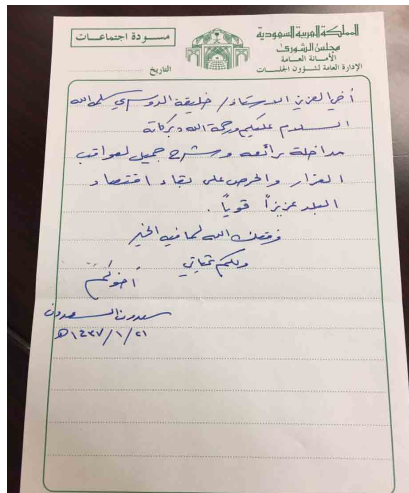 المملكة العربية السعودية
مجلس الشورى
الأمانة العامة
الإدارة العامة لشؤون الجلسات
مسودة اجتماعات
التاريخ
أخي العزيز الاستاذ / خليفة الدوسري سلمه الله
السلام عليكم ورحمة الله وبركاته
مداخلة رائعه وشرح جميل لعواقب
القرار والحرص على بقاء اقتصاد
البلد عزيزاً قوياً .
وفقك الله لما فيه الخير
ولكم تحياتي
أخوكم
سعدون السعدون
١٤٣٧/١/٢١هـ